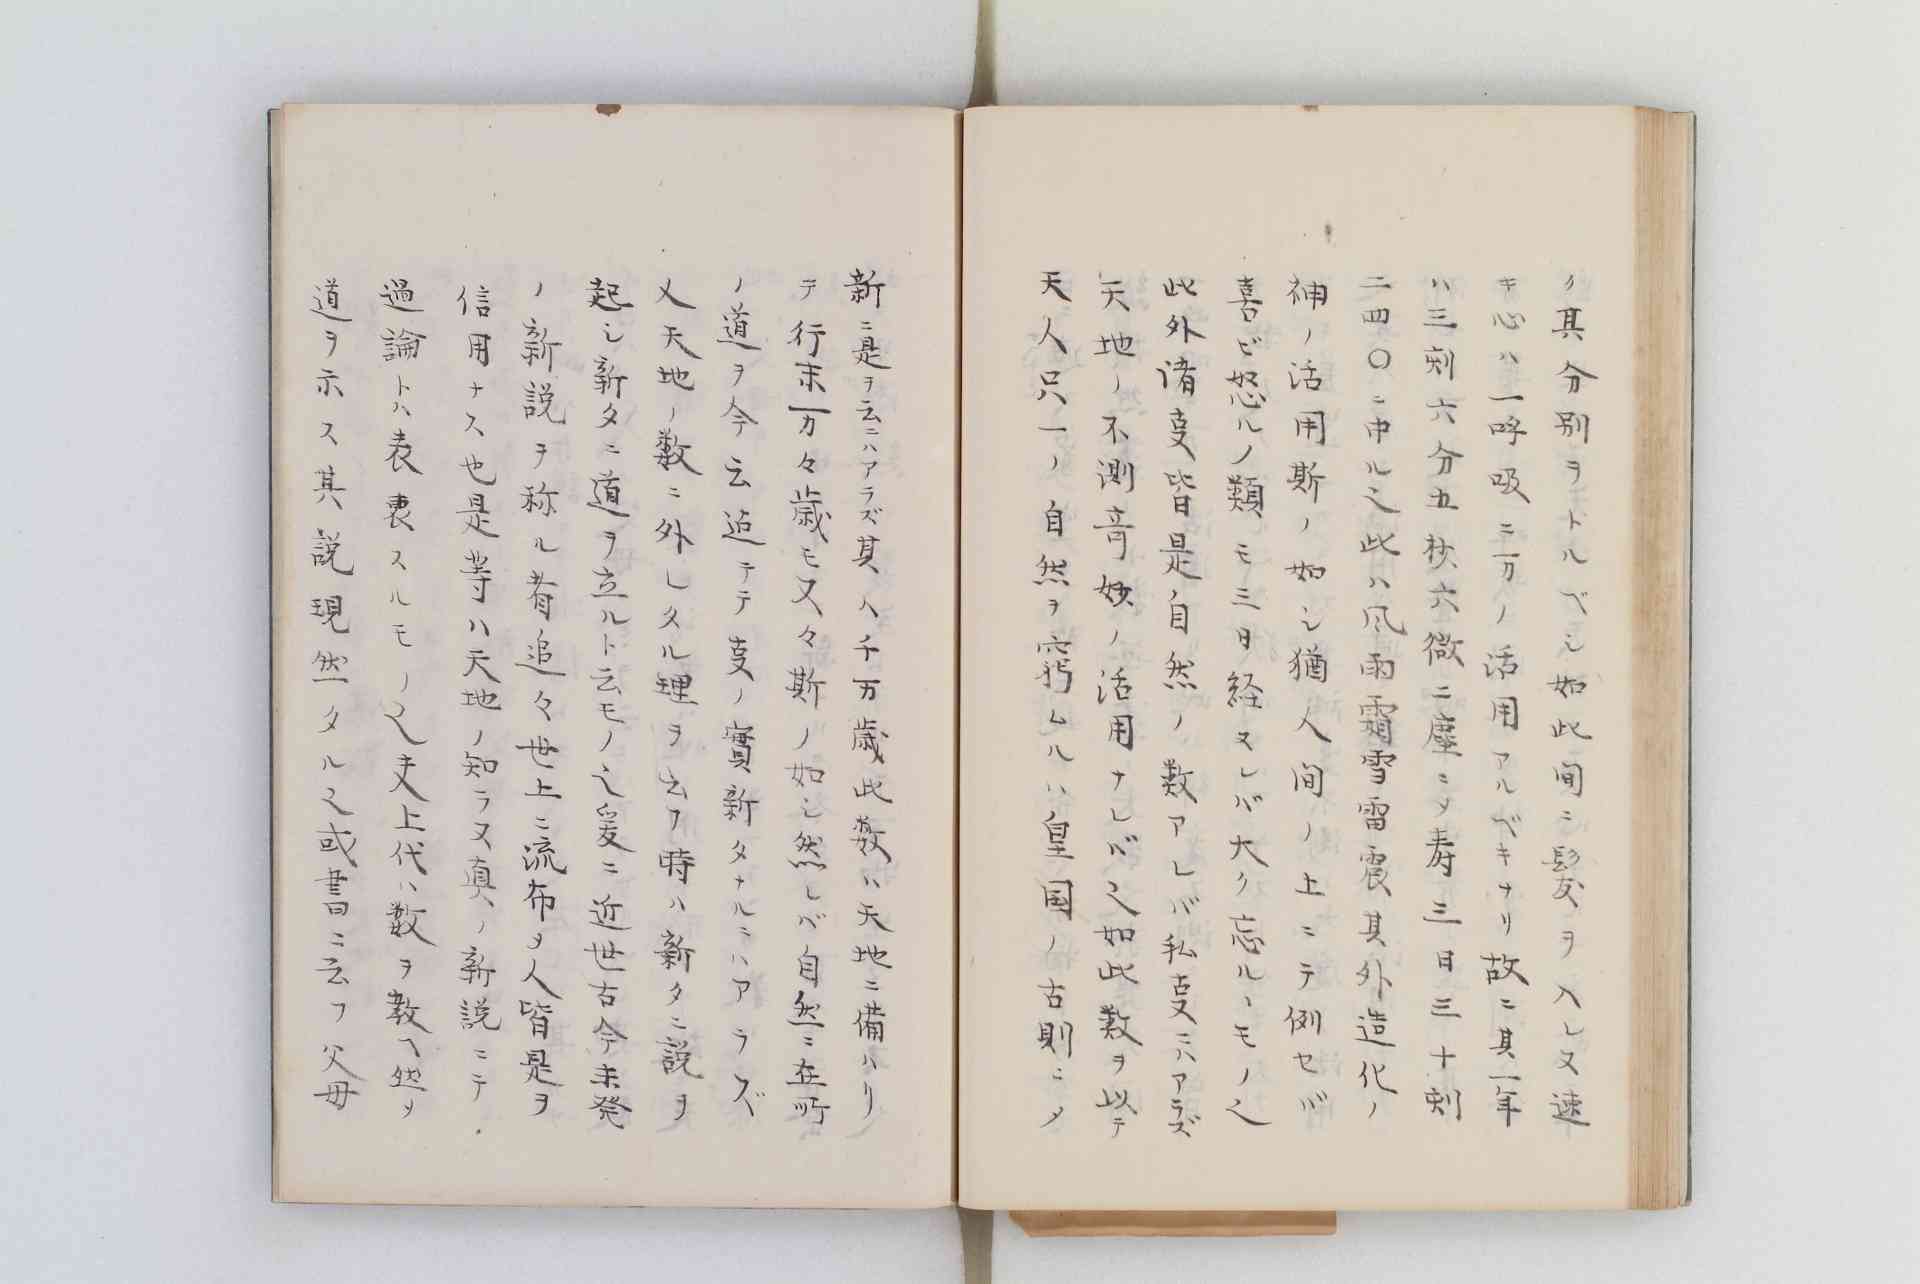 ノ其分別ヲトルベシ如此間ニ髪ヲ入レヌ速
キ心ハ一呼吸ニ一万ノ活用アルベキナリ故ニ其一年
ハ三刻六分五秒六微二塵ニメ寿三日三十刻
二四〇ニ中ル之此ハ風雨霜雪雷震其外造化ノ
神ノ活用斯ノ如シ猶人间ノ上ニテ例セバ
喜ビ怒ルノ類モ三日経ヌレバ大ク忘ルヽモノ之
此外諸叓皆是自然ノ数アレバ私叓ニハアラズ
天地ノ不測竒妙ノ活用ナレバ之如此数ヲ以テ
天人只一ノ自然ヲ窮ムルハ皇国ノ古則ニメ
新ニ是ヲ云ニハアラズ其ハ千万歳此数ハ天地ニ備ハリ
テ行末万々歳モ又々斯ノ如シ然レバ自然ニ在所
ノ道ヲ今云迠テテ叓ノ實新タナルニハアラズ
又天地ノ数ニ外レタル理ヲ云フ時ハ新タニ説ヲ
起シ新タニ道ヲ立ルト云モノ之爰ニ近世古今未発
ノ新説ヲ称ル者追々世上ニ流布メ人皆是ヲ
信用ナス也是等ハ天地ノ知ラヌ真ノ新説ニテ
過論トハ表裏スルモノ之夫上代ハ数ヲ教ヘ然メ
道ヲ示ス其説現然タル之或書ニ云フ父母